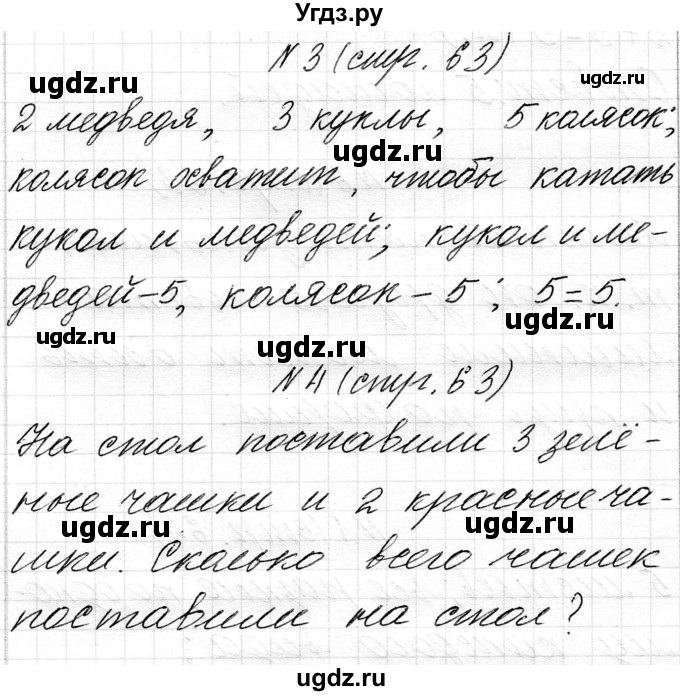 Угдз.ру
N 3 (стр. 63)
ugdz.ru ugdz.ru
2 медведя, 3 куклы, 5 колясок;
ugdz.ru
колясок хватит, чтобы катать
кукол и медведей; кукол и ме-
дведей-5, колясок - 5; 5=5.
ugdz.ru ugdz.ru
ugdz.ru
N 4 (стр. 63)
На стол поставили 3 зелё-
ные чашки и 2 красные ча-
ugdz.ru ugdz.ru
шки. Сколько всего чашек
поставили на стол?
ugdz.ru